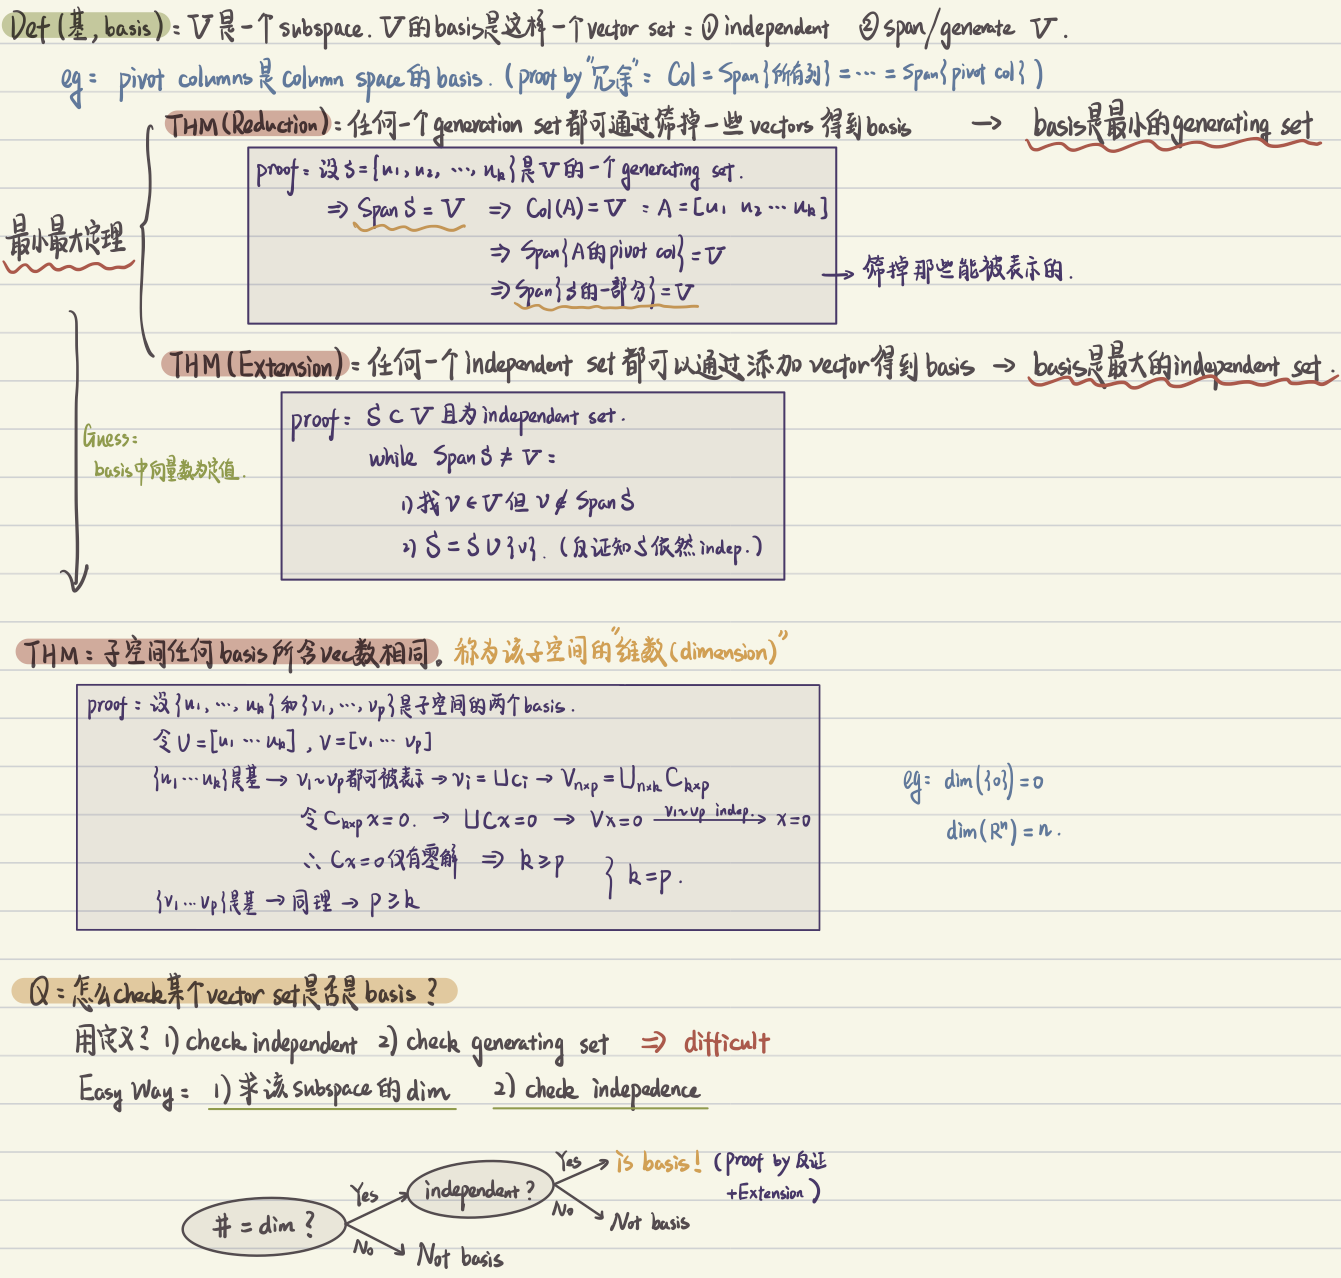 Def (基, basis): V是一个subspace. V的basis是这样一个vector set: ① independent ② span/generate V.
eg: pivot columns是column space的basis. (proof by "冗余": Col = Span{所有列} = ... = Span{pivot col})
THM(Reduction): 任何一个generation set都可通过筛掉一些vectors得到basis → basis是最小的generating set
proof: 设S={u₁, u₂, ..., uₖ}是V的一个generating set.
⇒ Span S = V ⇒ Col(A)=V : A=[u₁ u₂ ... uₖ]
⇒ Span{A的pivot col}=V
⇒ Span{S的一部分}=V
→ 筛掉那些能被表示的.
最小最大定理
THM(Extension): 任何一个independent set都可以通过添加vector得到basis → basis是最大的independent set.
proof: S ⊂ V 且为independent set.
while Span S ≠ V:
1) 找v∈V但v∉Span S
2) S = S∪{v}. (反证知S依然indep.)
Guess:
basis中向量数为定值.
THM: 子空间任何basis所含vec数相同. 称为该子空间的"维数(dimension)"
proof: 设{u₁, ..., uₖ}和{v₁, ..., vₚ}是子空间的两个basis.
令U=[u₁ ... uₖ], V=[v₁ ... vₚ]
{u₁...uₖ}是基 → v₁~vₚ都可被表示 → vᵢ=Ucᵢ → Vₙₓₚ=Uₙₓₖ Cₖₓₚ
令Cₖₓₚ x=0. → UCx=0 → Vx=0 v₁~vₚ indep. → x=0
∴ Cx=0仅有零解 ⇒ k≥p
} k=p.
{v₁...vₚ}是基 → 同理 → p≥k
eg: dim({0})=0
dim(Rⁿ)=n.
Q: 怎么check某个vector set是否是basis?
用定义? 1) check independent 2) check generating set ⇒ difficult
Easy Way: 1) 求该subspace的dim 2) check indepedence
# = dim?
Yes
No
Not basis
independent?
Yes
No
is basis! (Proof by 反证
+Extension)
Not basis